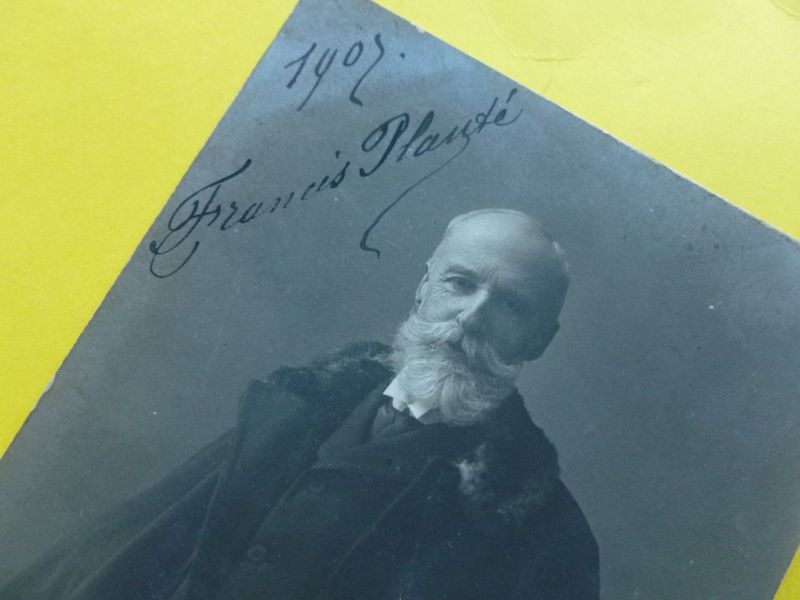 1907.
Francis Planté